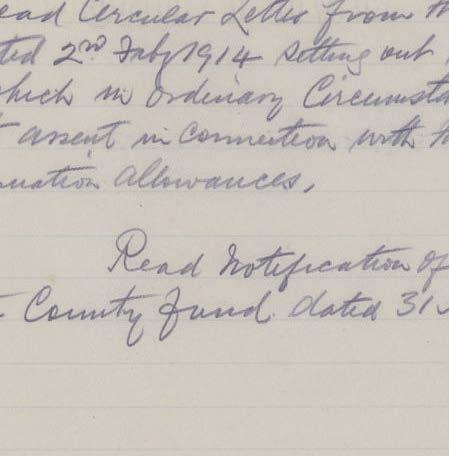 ead Circular Letter from th
ted 2nd Faby 1914 setting out
which in ordinary Circumsta
t assent in Connection with th
nuation Allowances,
Read Notification of
t County fund dated 31